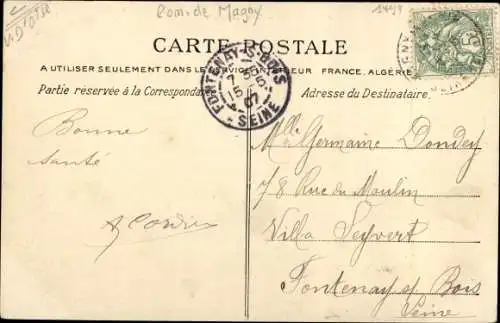 V D'OISE
Com. de Magny
CARTE POSTALE
A UTILISER SEULEMENT DANS LE SERVICE INTÉRIEUR FRANCE, ALGÉRIE
Partie réservée à la Correspondance
Adresse du Destinataire.
FONTENAY-S-BOIS
15
07
SEINE
Bonne
santé
Melle Germaine Dondey
78 Rue du Moulin
Villa Seyvert
Fontenay s/ Bois
Seine